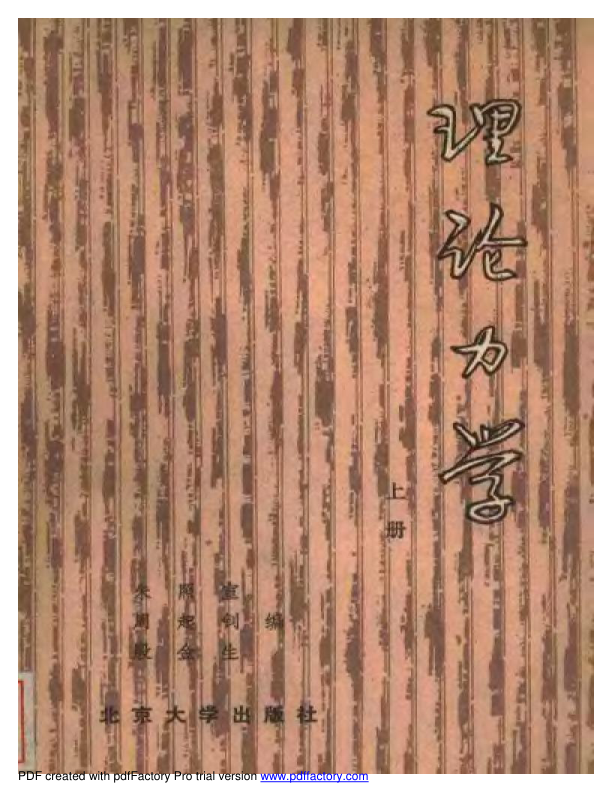 理论力学
上册
朱照宣
周起钊 编
殷金生
北京大学出版社
PDF created with pdfFactory Pro trial version www.pdffactory.com